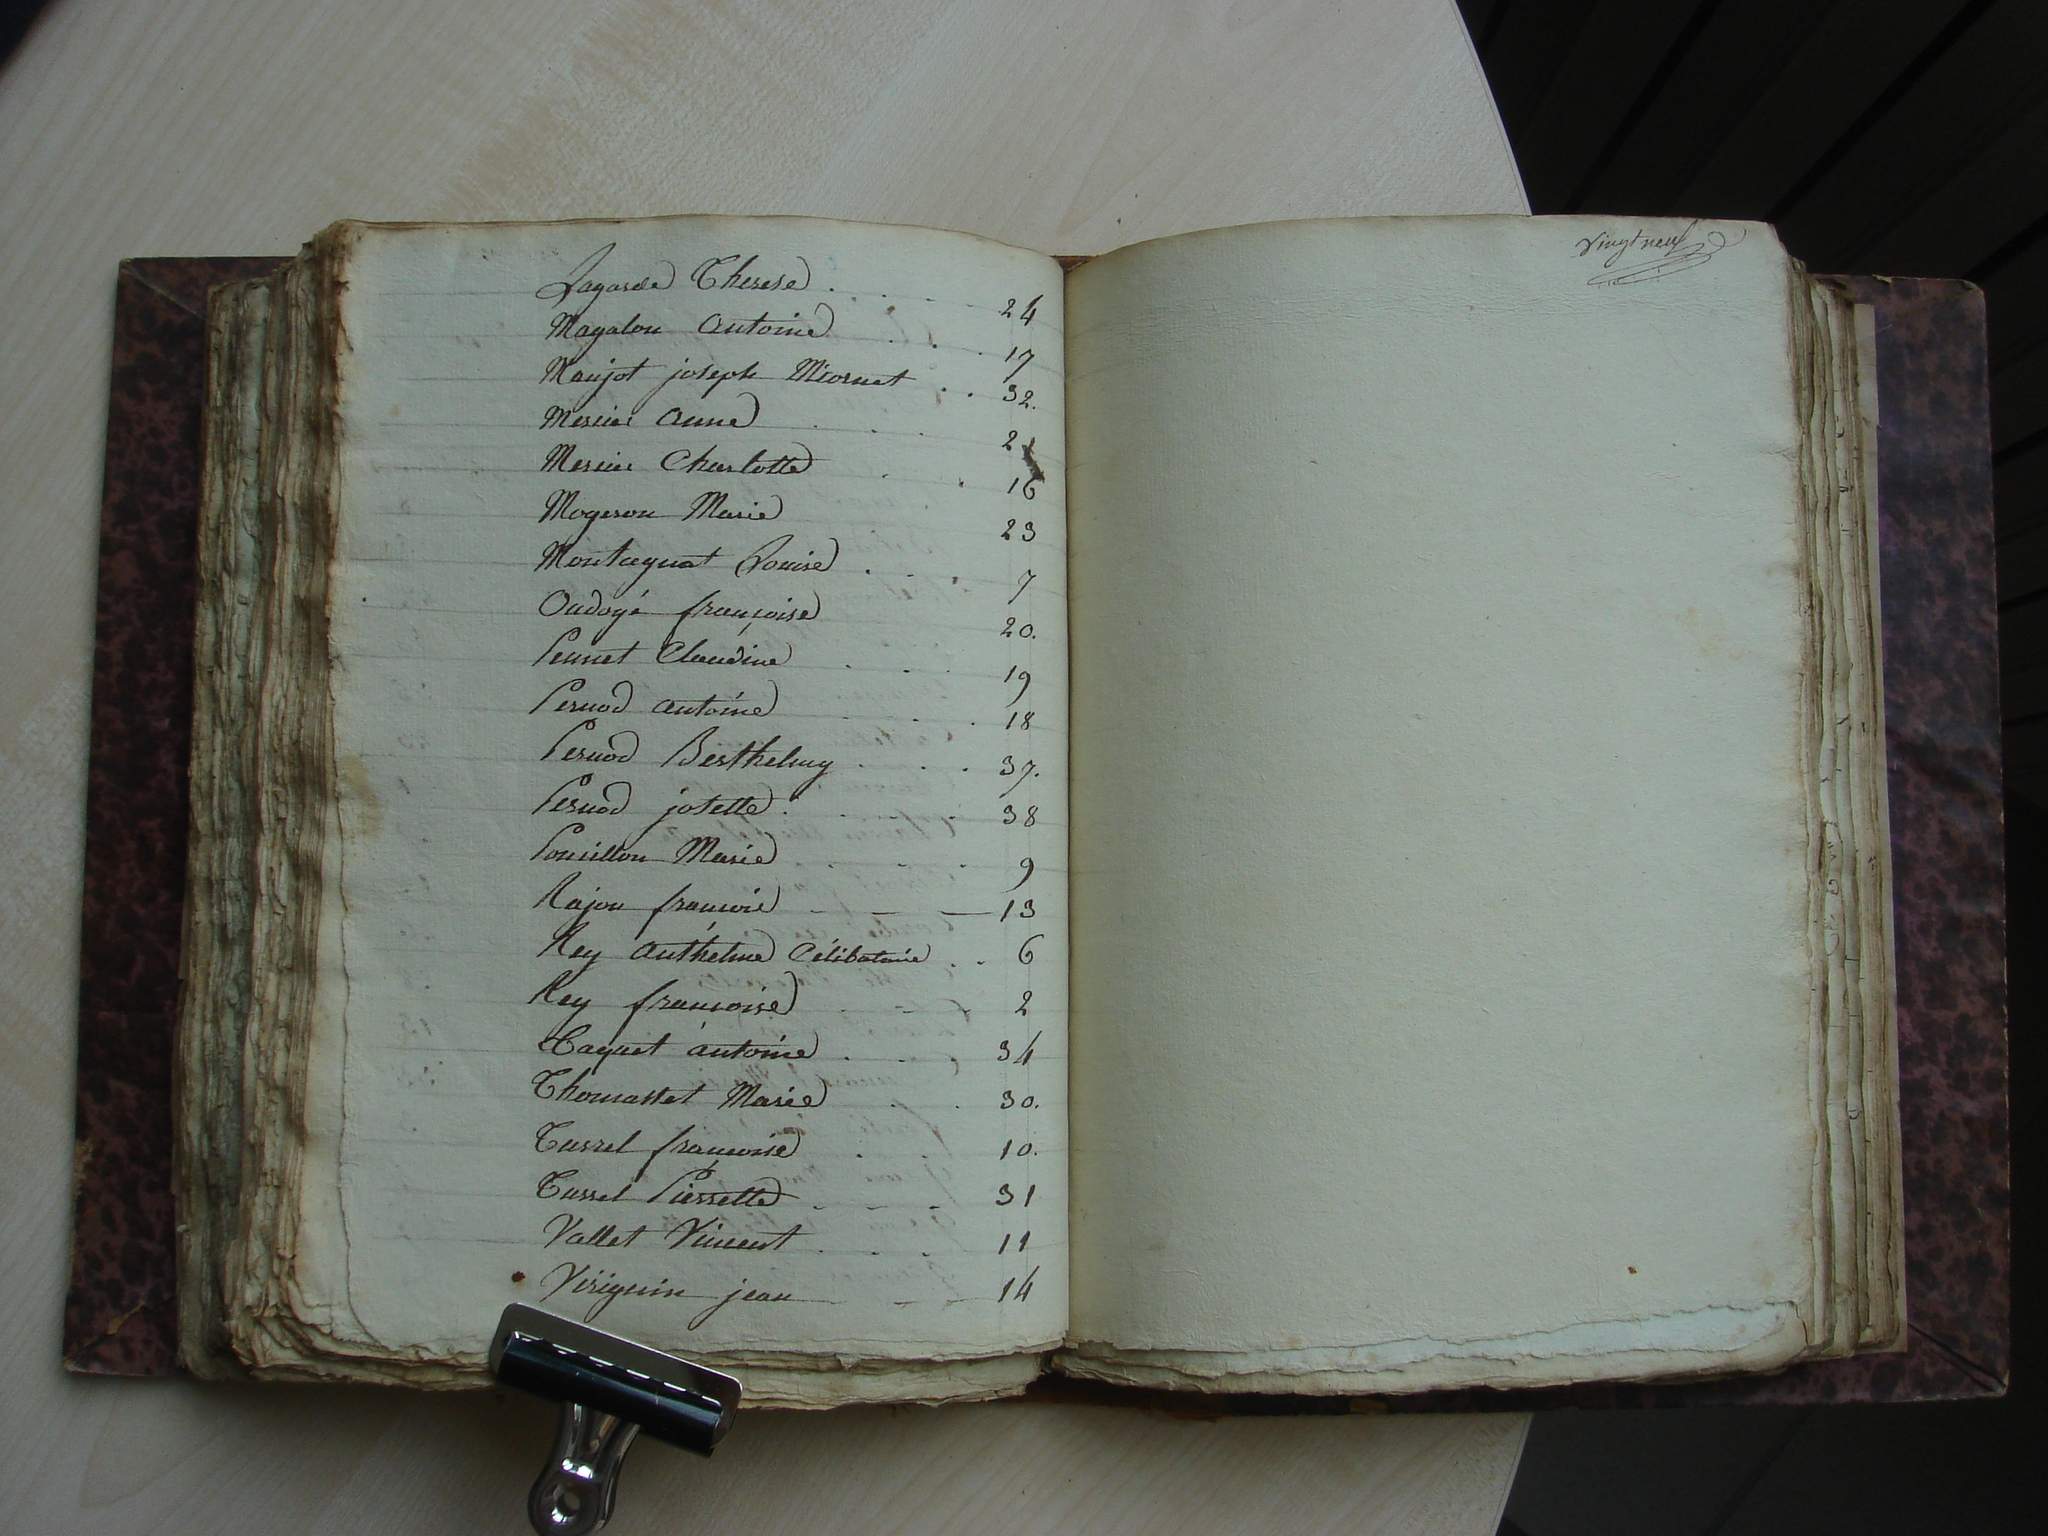 Lagarde Therese . . . . 24
Magalon antoine . . . 17
Maujot joseph Miornet . . 32.
Mercier anne . . . 2
Mercier Charlotte . . 16
Mogeron Marie 23
Montagnat Louise . . . 7
Oudoyé françoise 20.
Pennet Claudine . . . 19
Pernod antoine . . . 18
Pernod Berthelmy . . . 37.
Pernod josette . . . . 38
Pouillon Marie . . . . 9
Rajon françoise - - - 13
Rey anthelme Célibataire . . 6
Rey françoise . . . 2
Taquet antoine . . . 34
Thomasset Marie . . 30.
Turrel françoise . . 10.
Turrel Pierrette . . . 31
Vallet Vincent . . . 11
Viriguin jean - - - 14
Vingt neuf